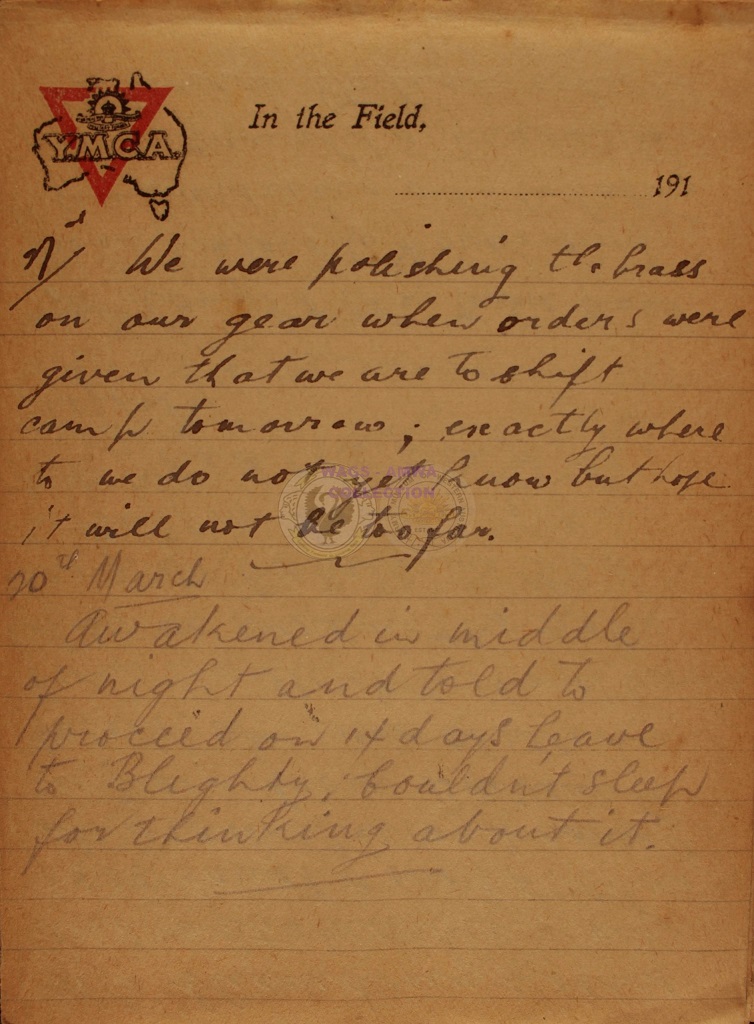 Y.M.C.A.
In the Field,
191
We were polishing the brass
on our gear when orders were
given that we are to shift
camp tomorrow; exactly where
to we do not yet know but hope
it will not be too far.
20th March
Awakened in middle
of night and told to
proceed on 14 days leave
to Blighty. Couldn't sleep
for thinking about it.